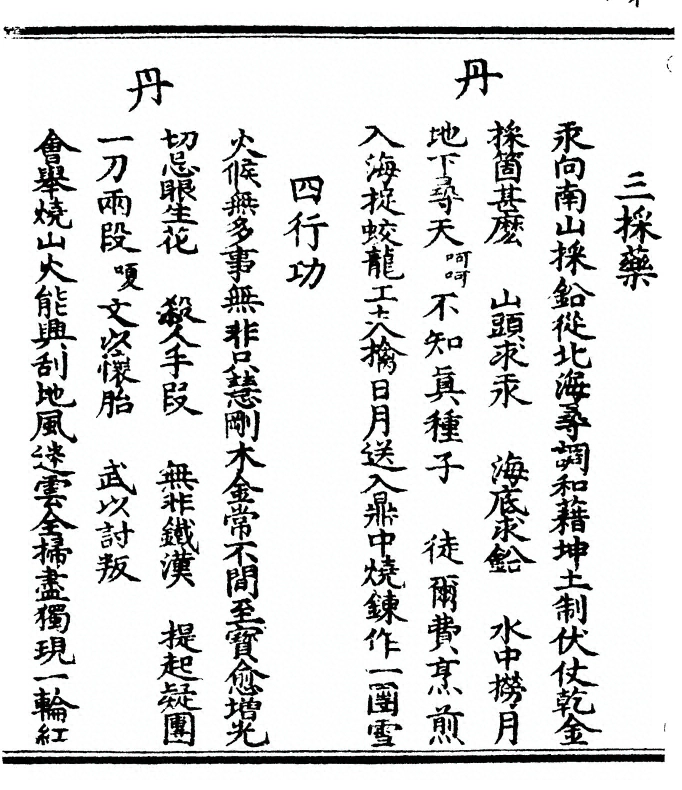 三採藥
汞向南山採鉛從北海尋調和藉坤土制伏仗乾金
採箇甚麽　山頭求汞　海底求鉛　水中撈月
丹　地下尋天呵呵不知眞種子　徒爾費烹煎
入海捉蛟龍工士入擒日月送入鼎中燒鍊作一團雪
四行功
火候無多事無非只慧剛木金常不間至寶愈增光
切忌眼生花　殺人手段　無非鐵漢　提起疑團
丹　一刀兩段嗄文以懷胎　武以討叛
會舉燒山火能興刮地風迷雲全掃盡獨現一輪紅